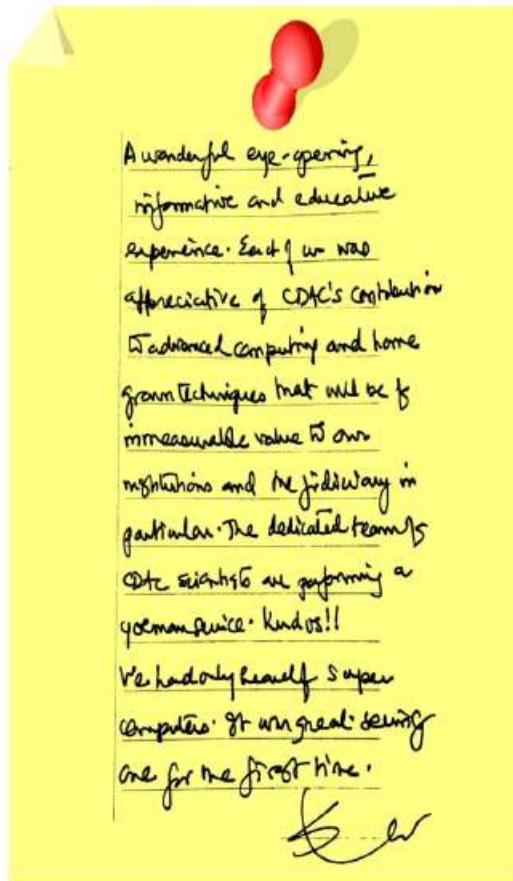 A wonderful eye-opening,
informative and educative
experience. Each of us was
appreciative of CDAC's contribution
to advanced computing and home
grown techniques that will be of
immeasurable value to our
institutions and the judiciary in
particular. The dedicated team of
CDAC scientists are performing a
yoeman service. Kudos!!
We had only heard of super
computers. It was great seeing
one for the first time.